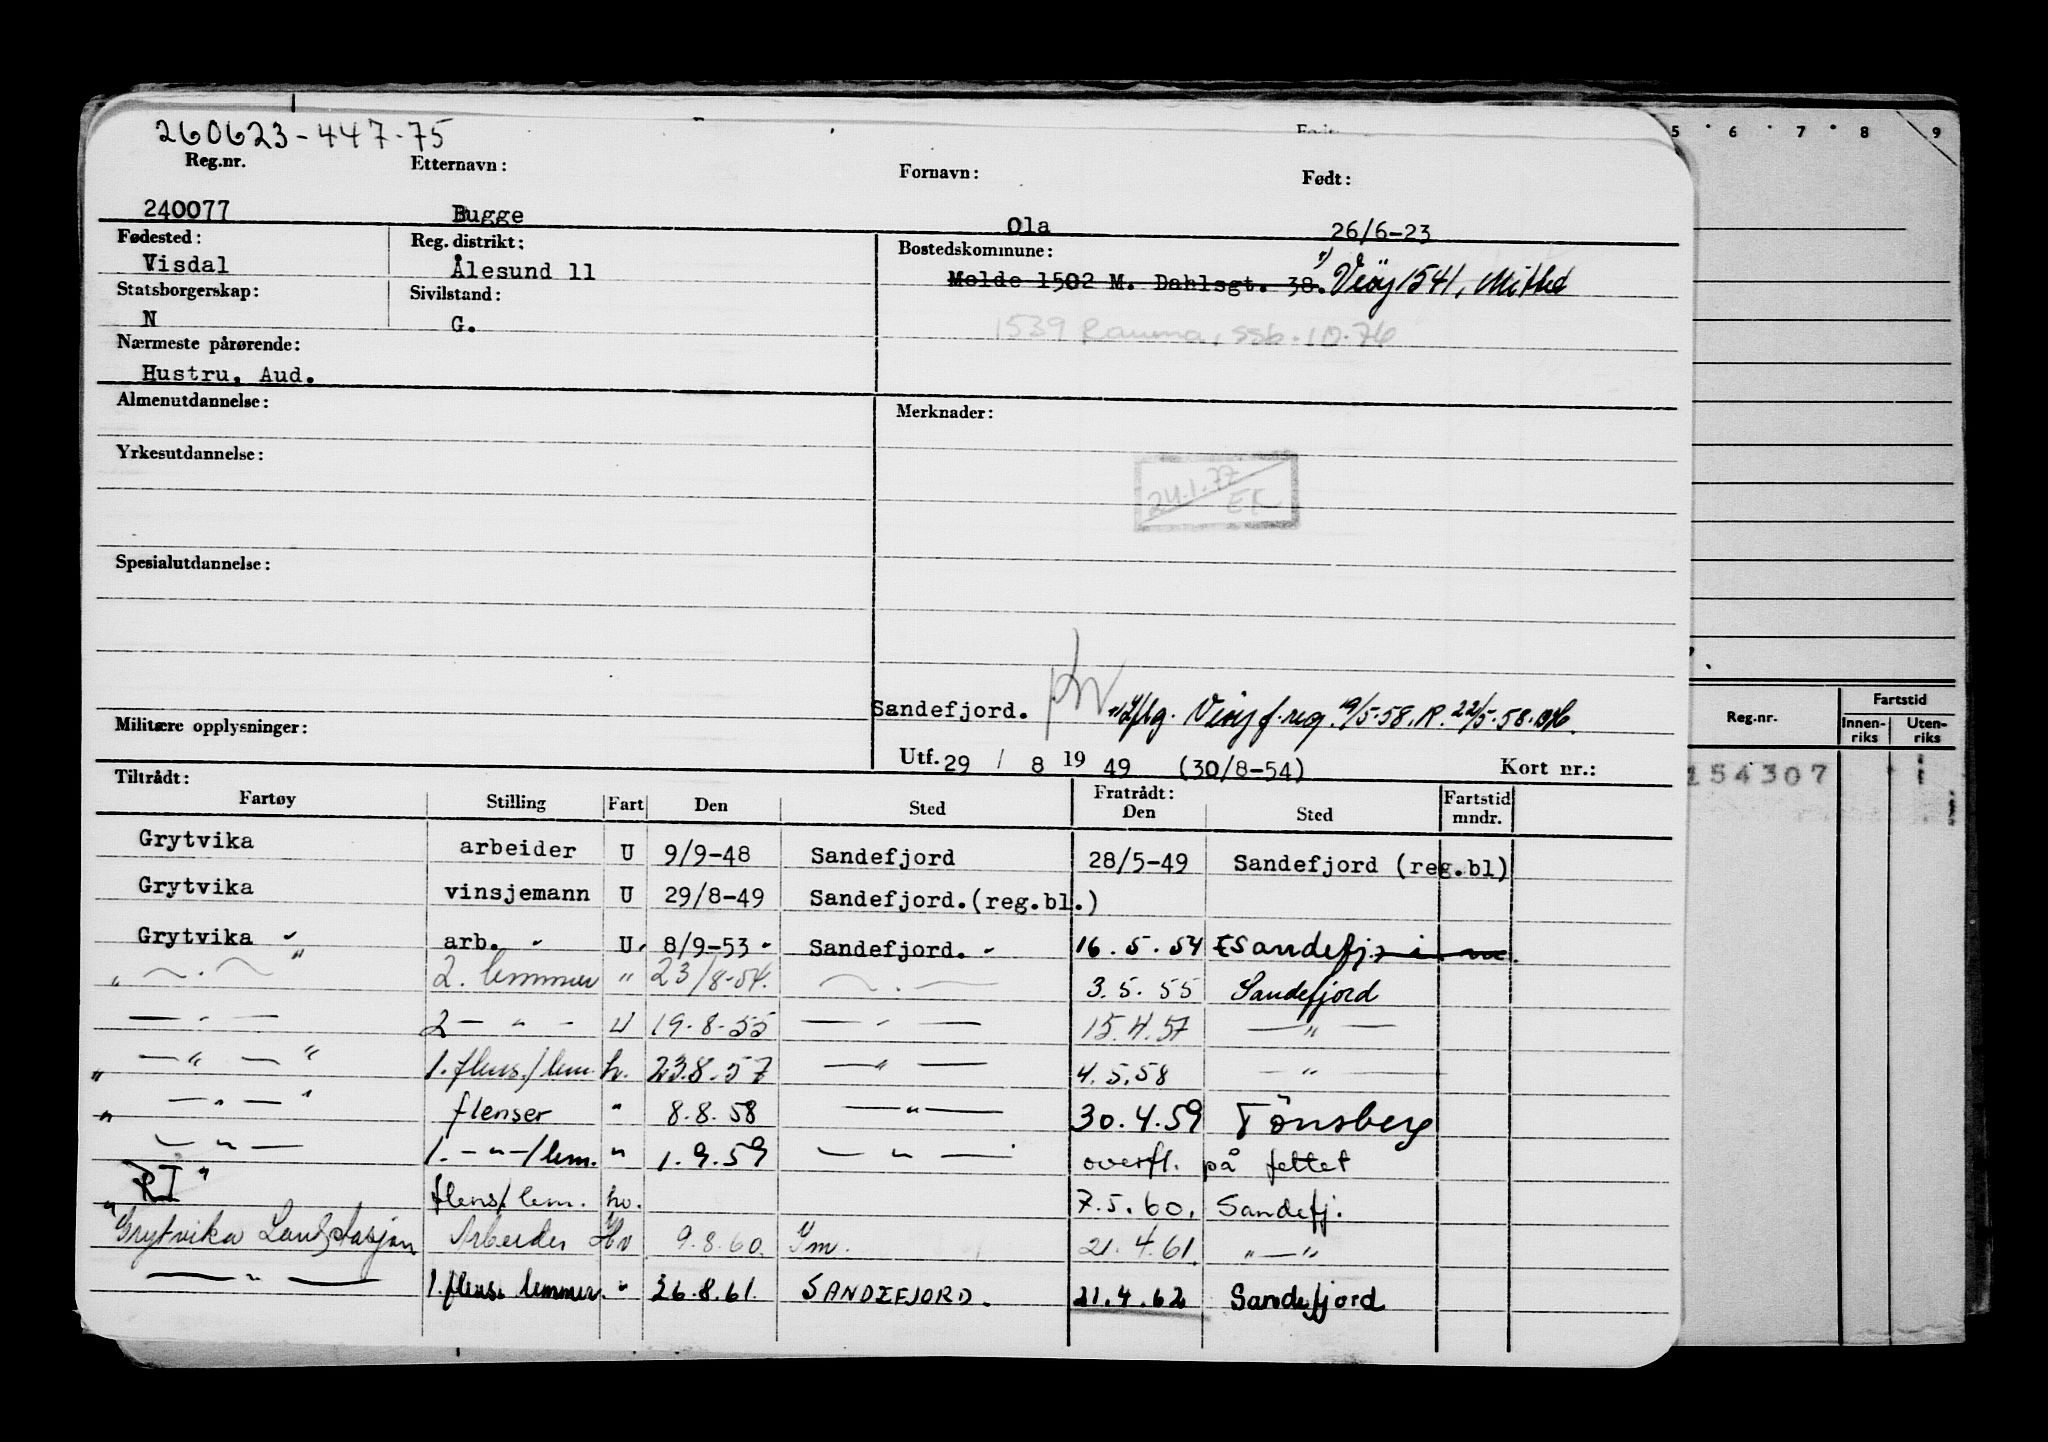 260623-447-75
5 6 7 8 9
Reg.nr. Etternavn: Fornavn: Født:
240077 Bugge Ola 26/6-23
Fødested: Reg. distrikt: Bostedskommune:
Visdal Ålesund 11 Molde 1502 M. Dahlsgt. 38. 1) Vøy 1541, Mittet
Statsborgerskap: Sivilstand:
N G. 1539 Rauma, ssb. 10.76
Nærmeste pårørende:
Hustru, Aud.
Almenutdannelse: Merknader:
Yrkesutdannelse:
24.1.77 EK
Spesialutdannelse:
Sandefjord. f. reg. 19/5-58. R. 22/5-58.
Militære opplysninger:
Utf. 29 / 8 19 49 (30/8-54) Kort nr.:
Reg.nr. Fartstid
Innen-riks Uten-riks
154307
Tiltrådt: Fratrådt:
Fartøy Stilling Fart Den Sted Den Sted Fartstid mndr.
Grytvika arbeider U 9/9-48 Sandefjord 28/5-49 Sandefjord (reg.bl)
Grytvika vinsjemann U 29/8-49 Sandefjord.(reg.bl.)
Grytvika " arb. U. 8/9-53 Sandefjord. 16.5.54 Sandefj.
" — . — 2. lemmer " 23/8-54. — . — 3.5.55 Sandefjord
— " — 2 — " — U 19.8.55 — " — 15.4.57 — " —
" — " — " 1. flens./lem. h. 23.8.57 — " — 4.5.58 — " —
" — " — " flenser " 8.8.58 — " — 30.4.59 Tönsberg
— " — 1. — " —/lem. " 1.9.59 — " — overfl. på feltet
RI " flens/lem. hv. 7.5.60. Sandefj.
" Grytvika Landstasjon Arbeider Hv 9.8.60. 21.4.61 " — "
— " — 1. flens. lemmer. " 26.8.61. SANDEFJORD. 21.4.62 Sandefjord